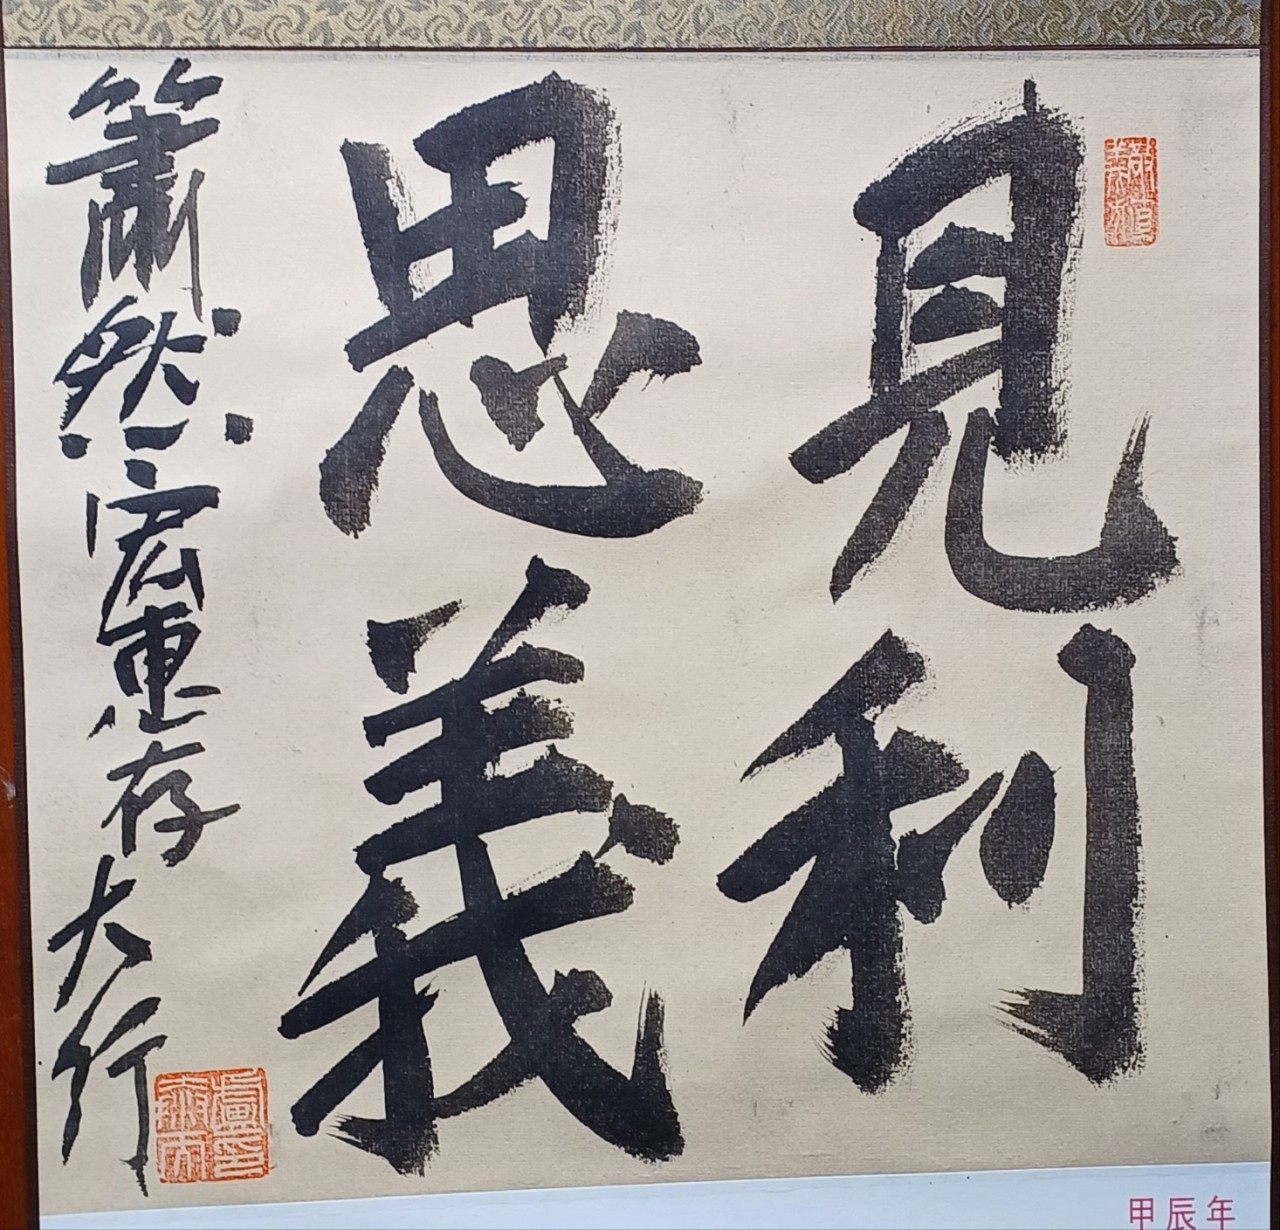 見利
思義
簫然宏惠存
大行
甲辰年